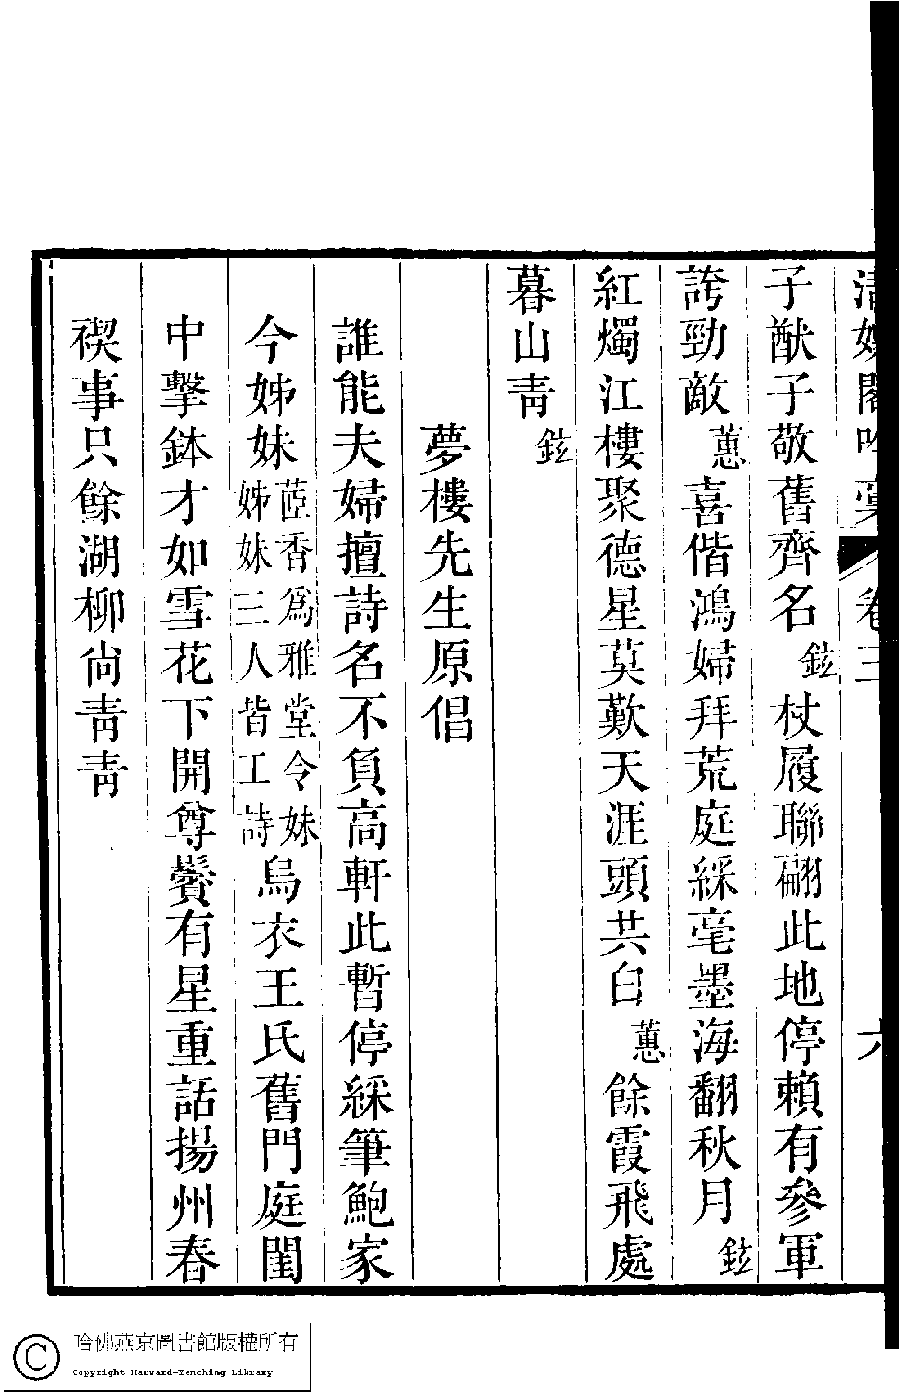 卷三
六
子猷子敬舊齊名鉉杖履聯翩此地停賴有參軍
誇勁敵蕙喜偕鴻婦拜荒庭綵毫墨海翻秋月鉉
紅燭江樓聚德星莫歎天涯頭共白蕙餘霞飛處
暮山靑鉉
夢樓先生原倡
誰能夫婦擅詩名不負高軒此暫停綵筆鮑家
今姊妹茝香爲雅堂令妹姊妹三人皆工詩烏衣王氏舊門庭閨
中擊鉢才如雪花下開尊鬢有星重話揚州春
禊事只餘湖柳尙靑靑
哈佛燕京圖書館版權所有
Copyright Harvard-Yenching Library